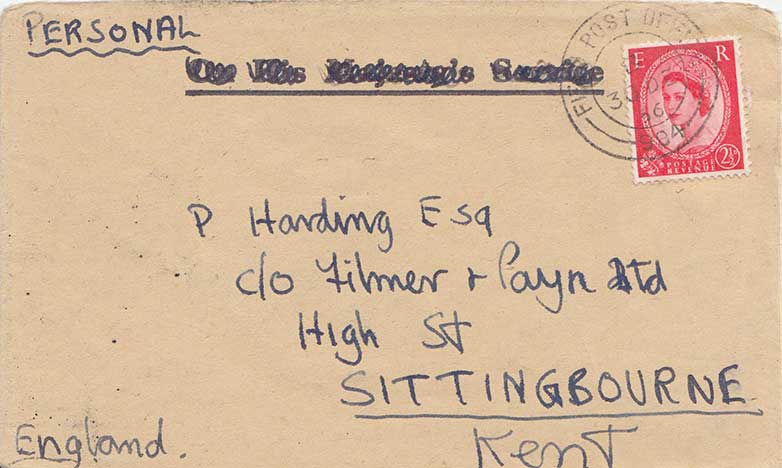 PERSONAL
On His Majesty's Service
FIELD POST OFFICE
984
E R
POSTAGE
REVENUE
2½D
P Harding Esq
c/o Filmer & Payn Ltd
High St
SITTINGBOURNE
Kent
England.